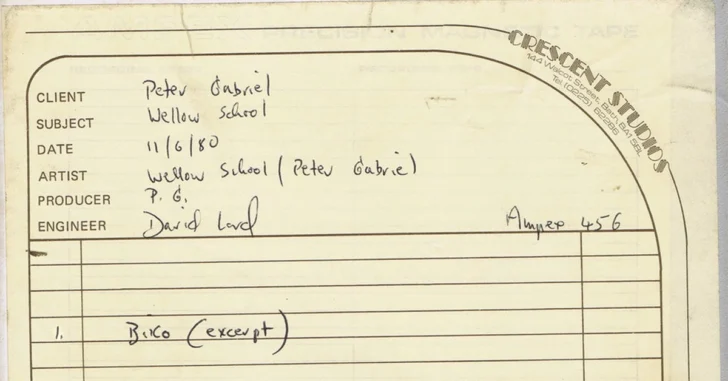 PRECISION MAGNETIC TAPE
CRESCENT STUDIOS
144 Walcot Street, Bath BA1 5BL
Tel (0225)
CLIENT Peter Gabriel
SUBJECT Wellow School
DATE 11/6/80
ARTIST Wellow School (Peter Gabriel)
PRODUCER P. G.
ENGINEER David Lord Ampex 456
1. Biko (excerpt)